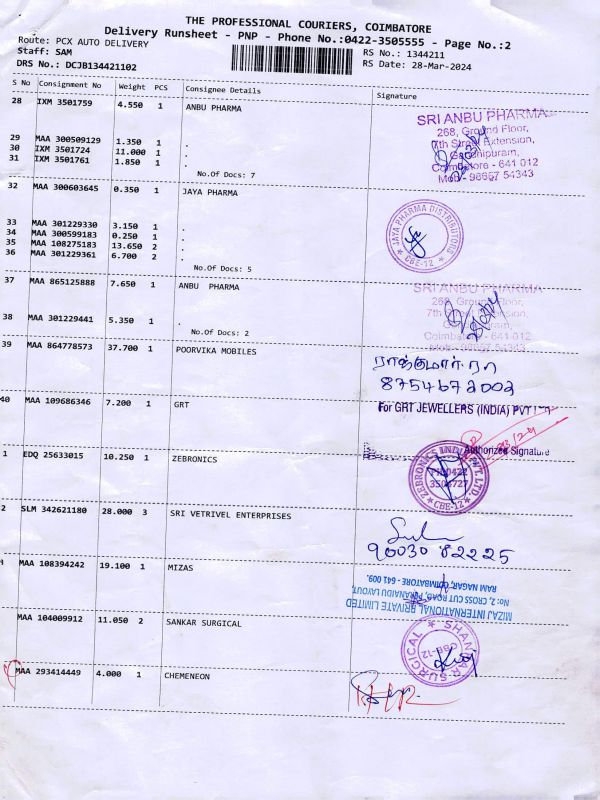 THE PROFESSIONAL COURIERS, COIMBATORE
Delivery Runsheet - PNP - Phone No.:0422-3505555 - Page No.:2
Route: PCX AUTO DELIVERY
Staff: SAM
RS No.: 1344211
DRS No.: DCJB134421102
RS Date: 28-Mar-2024
S No Consignment No Weight PCS Consignee Details Signature
28 IXM 3501759 4.550 1 ANBU PHARMA
SRI ANBU PHARMA
268, Ground Floor,
7th Street Extension,
Coimbatore - 641 012
Mob - 98657 54343
29 MAA 300509129 1.350 1 .
30 IXM 3501724 11.000 1 .
31 IXM 3501761 1.850 1 .
No.Of Docs: 7
32 MAA 300603645 0.350 1 JAYA PHARMA
JAYA PHARMA DISTRIBUTORS
* CBE-12 *
33 MAA 301229330 3.150 1 .
34 MAA 300599183 0.250 1 .
35 MAA 108275183 13.650 2 .
36 MAA 301229361 6.700 2 .
No.Of Docs: 5
37 MAA 865125888 7.650 1 ANBU PHARMA
SRI ANBU PHARMA
268, Ground Floor,
7th Street Extension,
Coimbatore - 641 012
38 MAA 301229441 5.350 1 .
No.Of Docs: 2
39 MAA 864778573 37.700 1 POORVIKA MOBILES
ராஜ்குமார்.ரா
8754672002
40 MAA 109686346 7.200 1 GRT
For GRT JEWELLERS (INDIA) PVT LTD
Authorized Signature
1 EDQ 25633015 10.250 1 ZEBRONICS
ZEBRONICS INDIA PVT. LTD.
* CBE-12 *
2 SLM 342621180 28.000 3 SRI VETRIVEL ENTERPRISES
90030 82225
MAA 108394242 19.100 1 MIZAS
MIZAJ INTERNATIONAL PRIVATE LIMITED
No: 2, CROSS CUT ROAD,
RAM NAGAR, COIMBATORE - 641 009.
MAA 104009912 11.050 2 SANKAR SURGICAL
SHANKAR SURGICAL
CBE-12
MAA 293414449 4.000 1 CHEMENEON